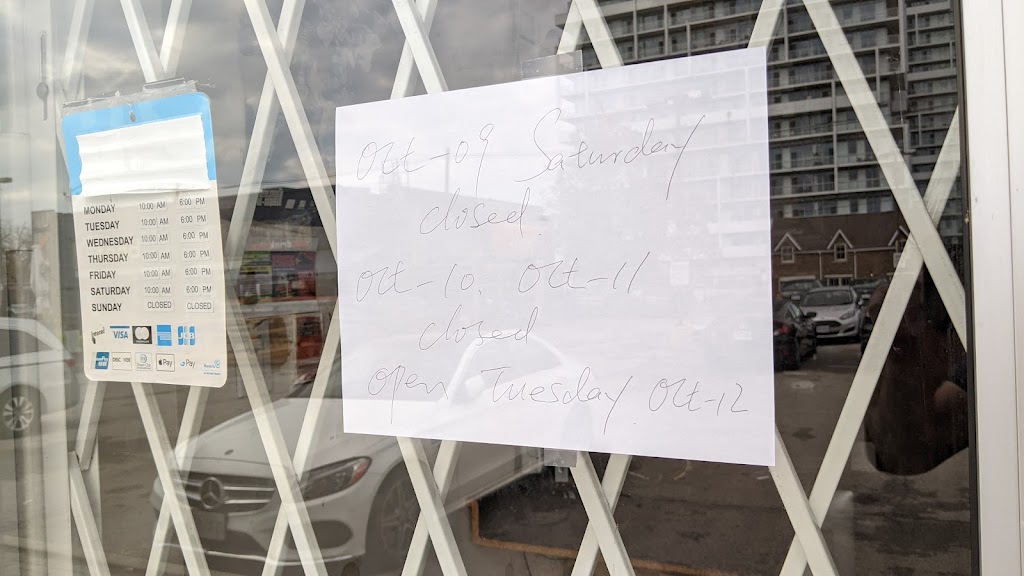 Oct-09 Saturday
closed.
Oct-10. Oct-11
closed
open Tuesday. Oct-12
MONDAY 10:00 AM 6:00 PM
TUESDAY 10:00 AM 6:00 PM
WEDNESDAY 10:00 AM 6:00 PM
THURSDAY 10:00 AM 6:00 PM
FRIDAY 10:00 AM 6:00 PM
SATURDAY 10:00 AM 6:00 PM
SUNDAY CLOSED CLOSED
VISA JCB
Pay Pay